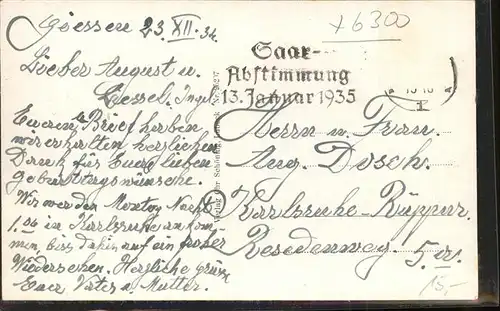 Giessen 23. XII. 34.
Lieber August u.
Liesel, Inge
Eueren lb Brief haben
wir erhalten herzlichen
Dank für Eure lieben
geburtstagswünsche.
Wir werden Montag Nacht
1.06 in Karlsruhe ankom-
men, biss dahin auf ein froher
Wiedersehen. Herzliche Grüsse
Euer Vater u. Mutter.
+6300
Saar-
Abstimmung
13. Januar 1935
Herrn u. Frau.
Aug. Dosch.
Karlsruhe-Rüppur.
Resedenweg. 5.
15,-